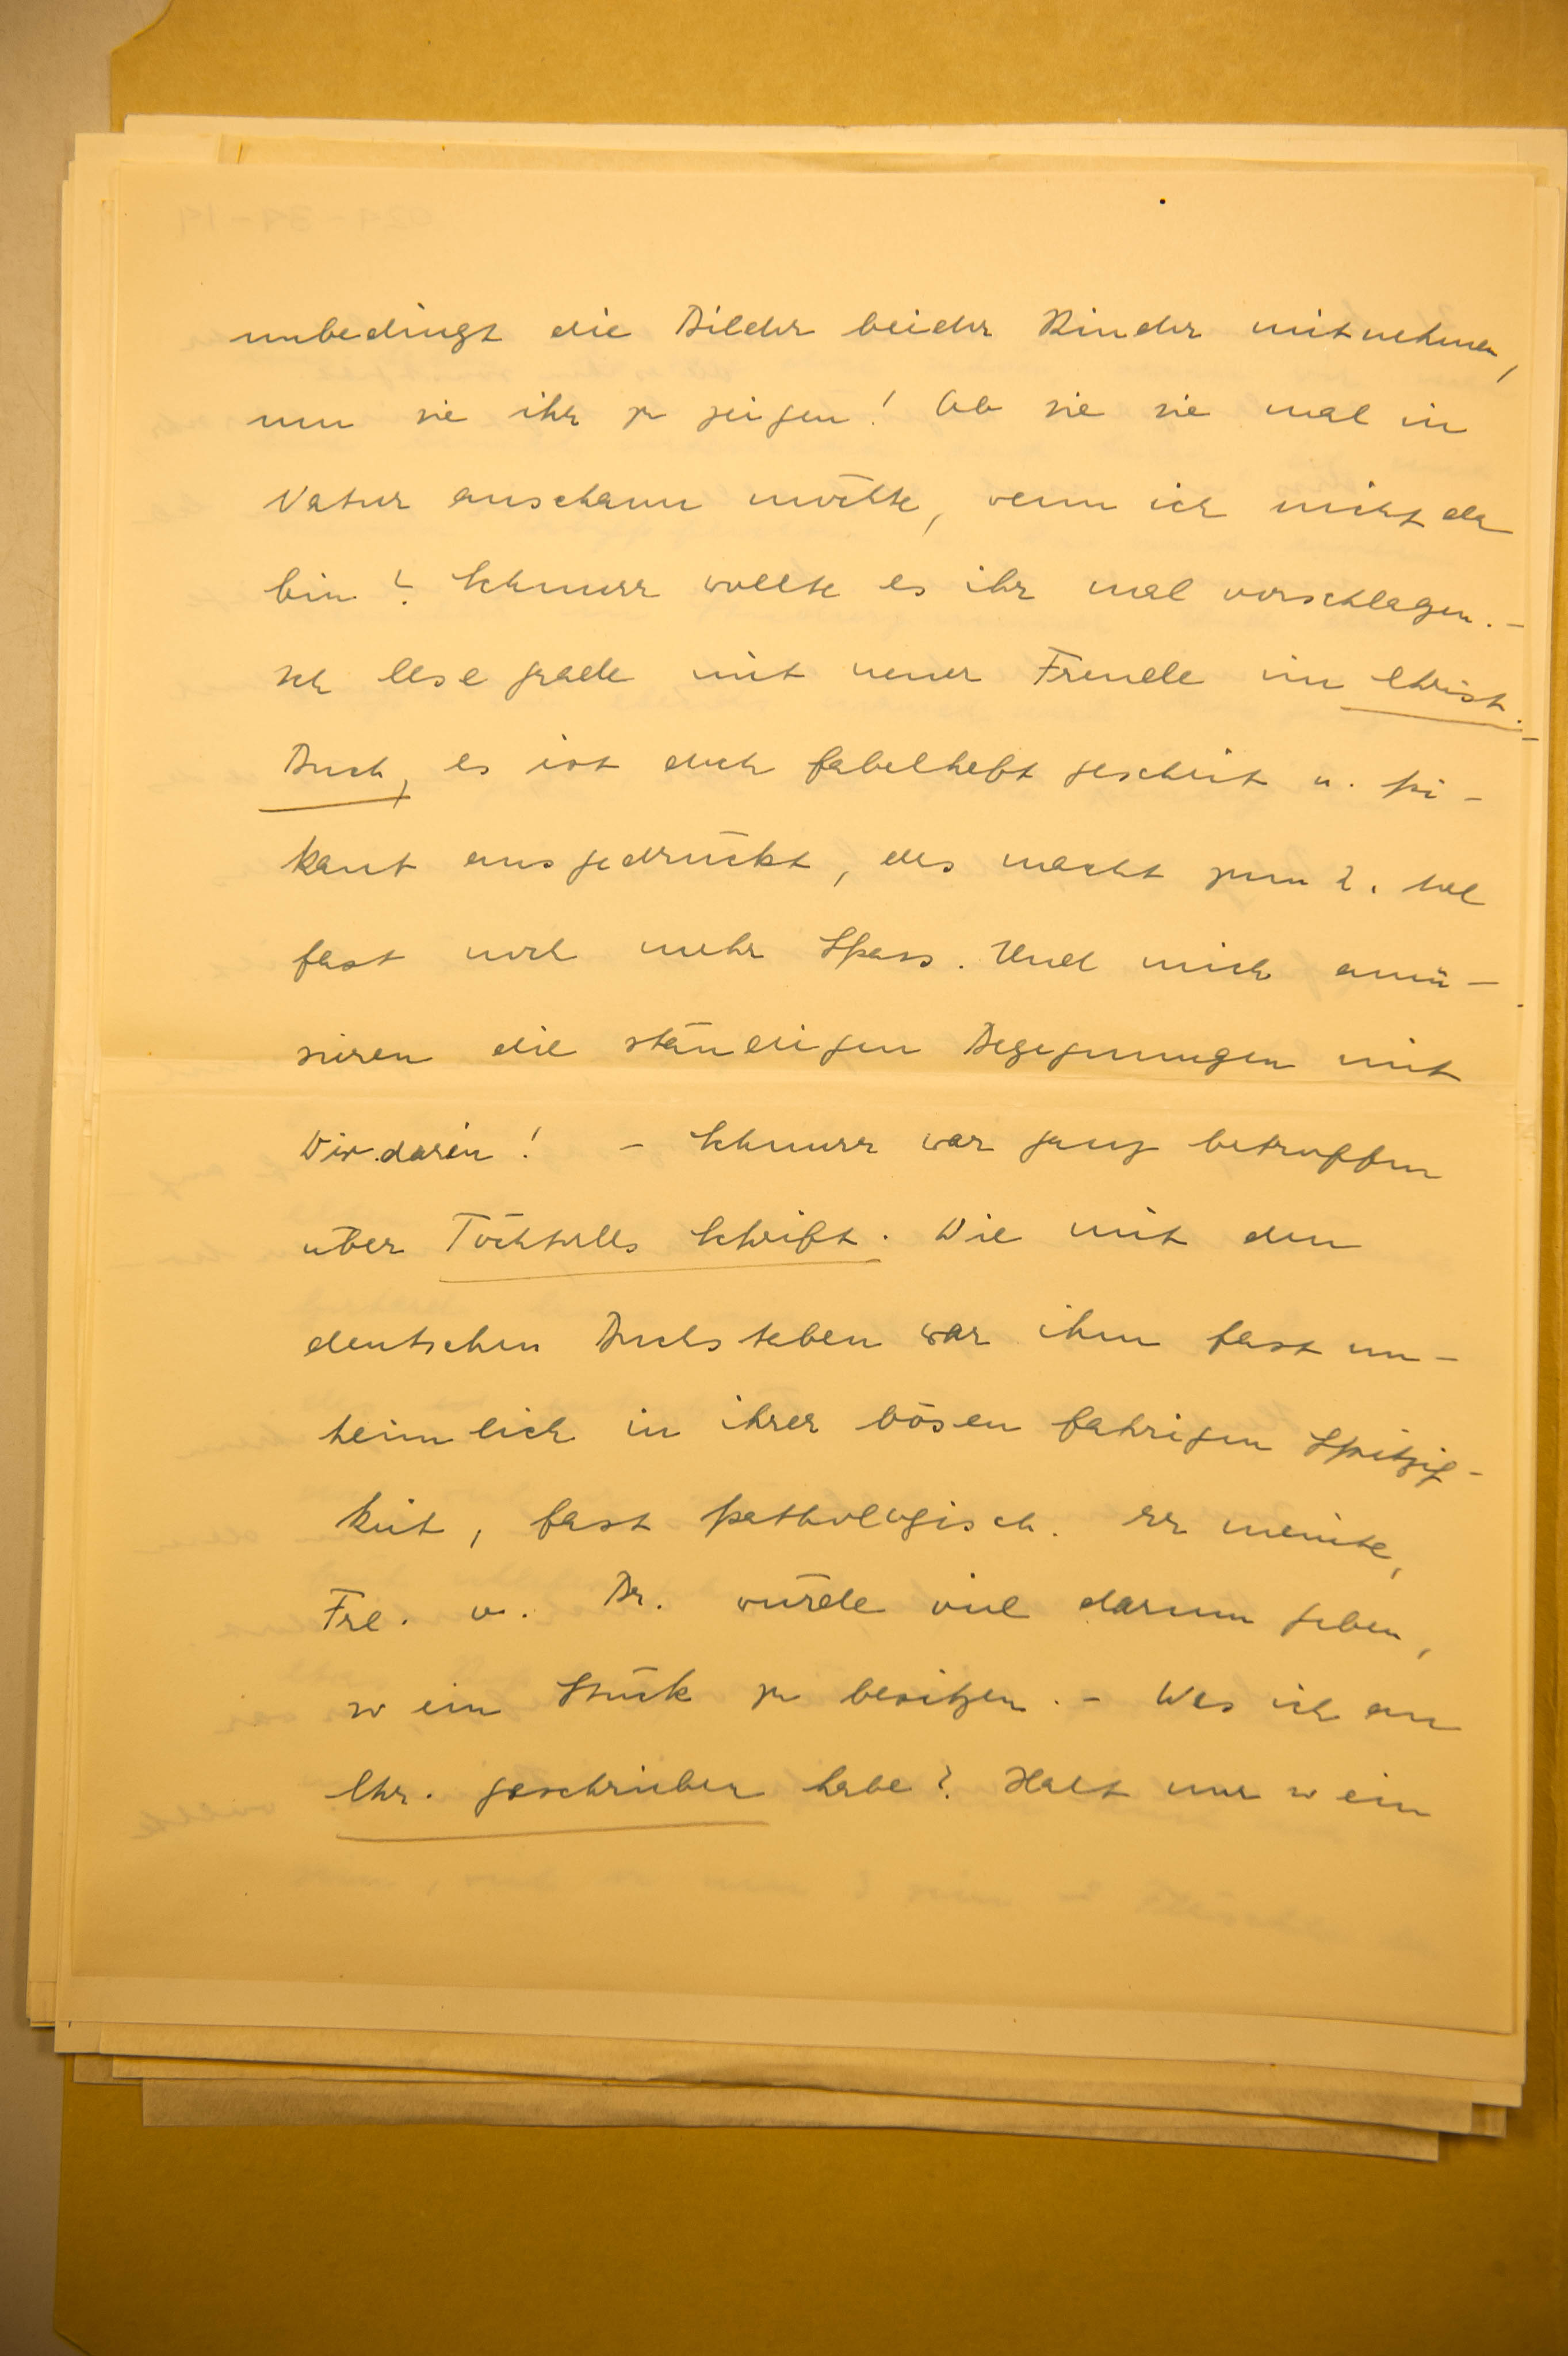 unbedingt die Bilder beider Kinder mitnehmen,
um sie ihr zu zeigen! Ob sie sie mal in
Natur anschaun möchte, wenn ich nicht da
bin? Schnurr wollte es ihr mal vorschlagen. –
Ich lese grade mit neuer Freude im Christ.-
Buch, es ist doch fabelhaft gescheit u. pi-
kant ausgedrückt, das macht zum 2. Mal
fast noch mehr Spass. Und mich amü-
sieren die ständigen Begegnungen mit
Dir darin! – Schnurr war ganz betroffen
über Töchterles Schrift. Die mit den
deutschen Buchstaben war ihm fast un-
heimlich in ihrer bösen fahrigen Spitzig-
keit, fast pathologisch. Er meinte,
Frl. v. Br. würde viel darum geben,
so ein Stück zu besitzen. – Was ich an
Chr. geschrieben habe? Halt nur so ein